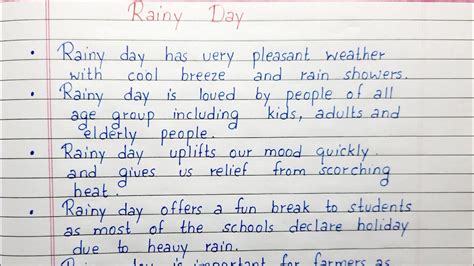 Rainy Day
• Rainy day has very pleasant weather
with cool breeze and rain showers.
• Rainy day is loved by people of all
age group including kids, adults and
elderly people.
• Rainy day uplifts our mood quickly
and gives us relief from scorching
heat.
• Rainy day offers a fun break to students
as most of the schools declare holiday
due to heavy rain.
Rainy day is important for farmers as